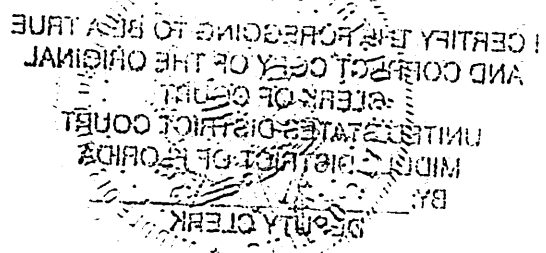 I CERTIFY THE FOREGOING TO BE A TRUE
AND CORRECT COPY OF THE ORIGINAL
CLERK OF COURT
UNITED STATES DISTRICT COURT
MIDDLE DISTRICT OF FLORIDA
BY:
DEPUTY CLERK